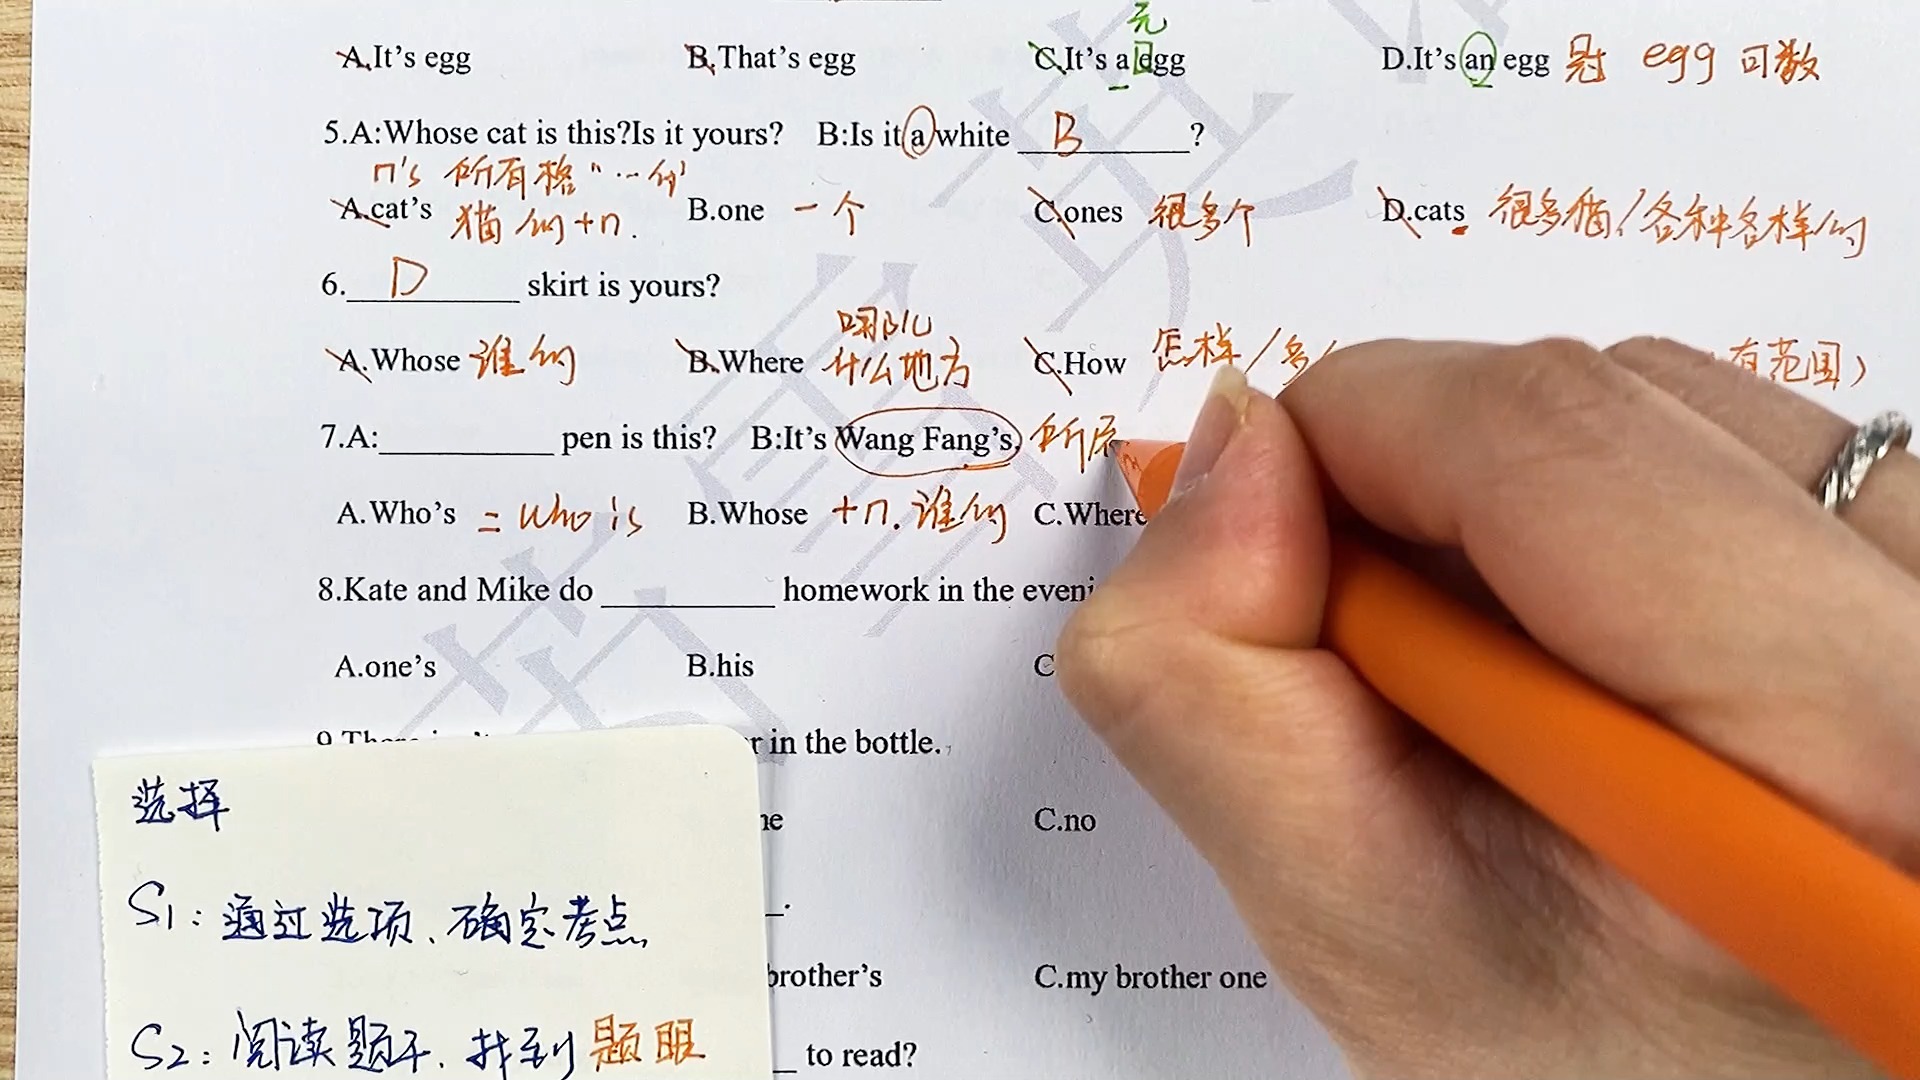 元
A.It's egg B.That's egg C.It's a egg D.It's an egg 冠 egg 可数
5.A:Whose cat is this?Is it yours? B:Is it a white B ?
n's 所有格"…的"
A.cat's 猫的+n. B.one 一个 C.ones 很多个 D.cats 很多猫/各种各样的
6. D skirt is yours?
哪儿
A.Whose 谁的 B.Where 什么地方 C.How 怎样/多 有范围)
7.A: pen is this? B:It's Wang Fang's. 所
A.Who's = who is B.Whose +n.谁的 C.Where
8.Kate and Mike do homework in the eveni
A.one's B.his C
r in the bottle.
选择 ne C.no
S1:通过选项、确定考点
brother's C.my brother one
S2:阅读题干.找到题眼 to read?